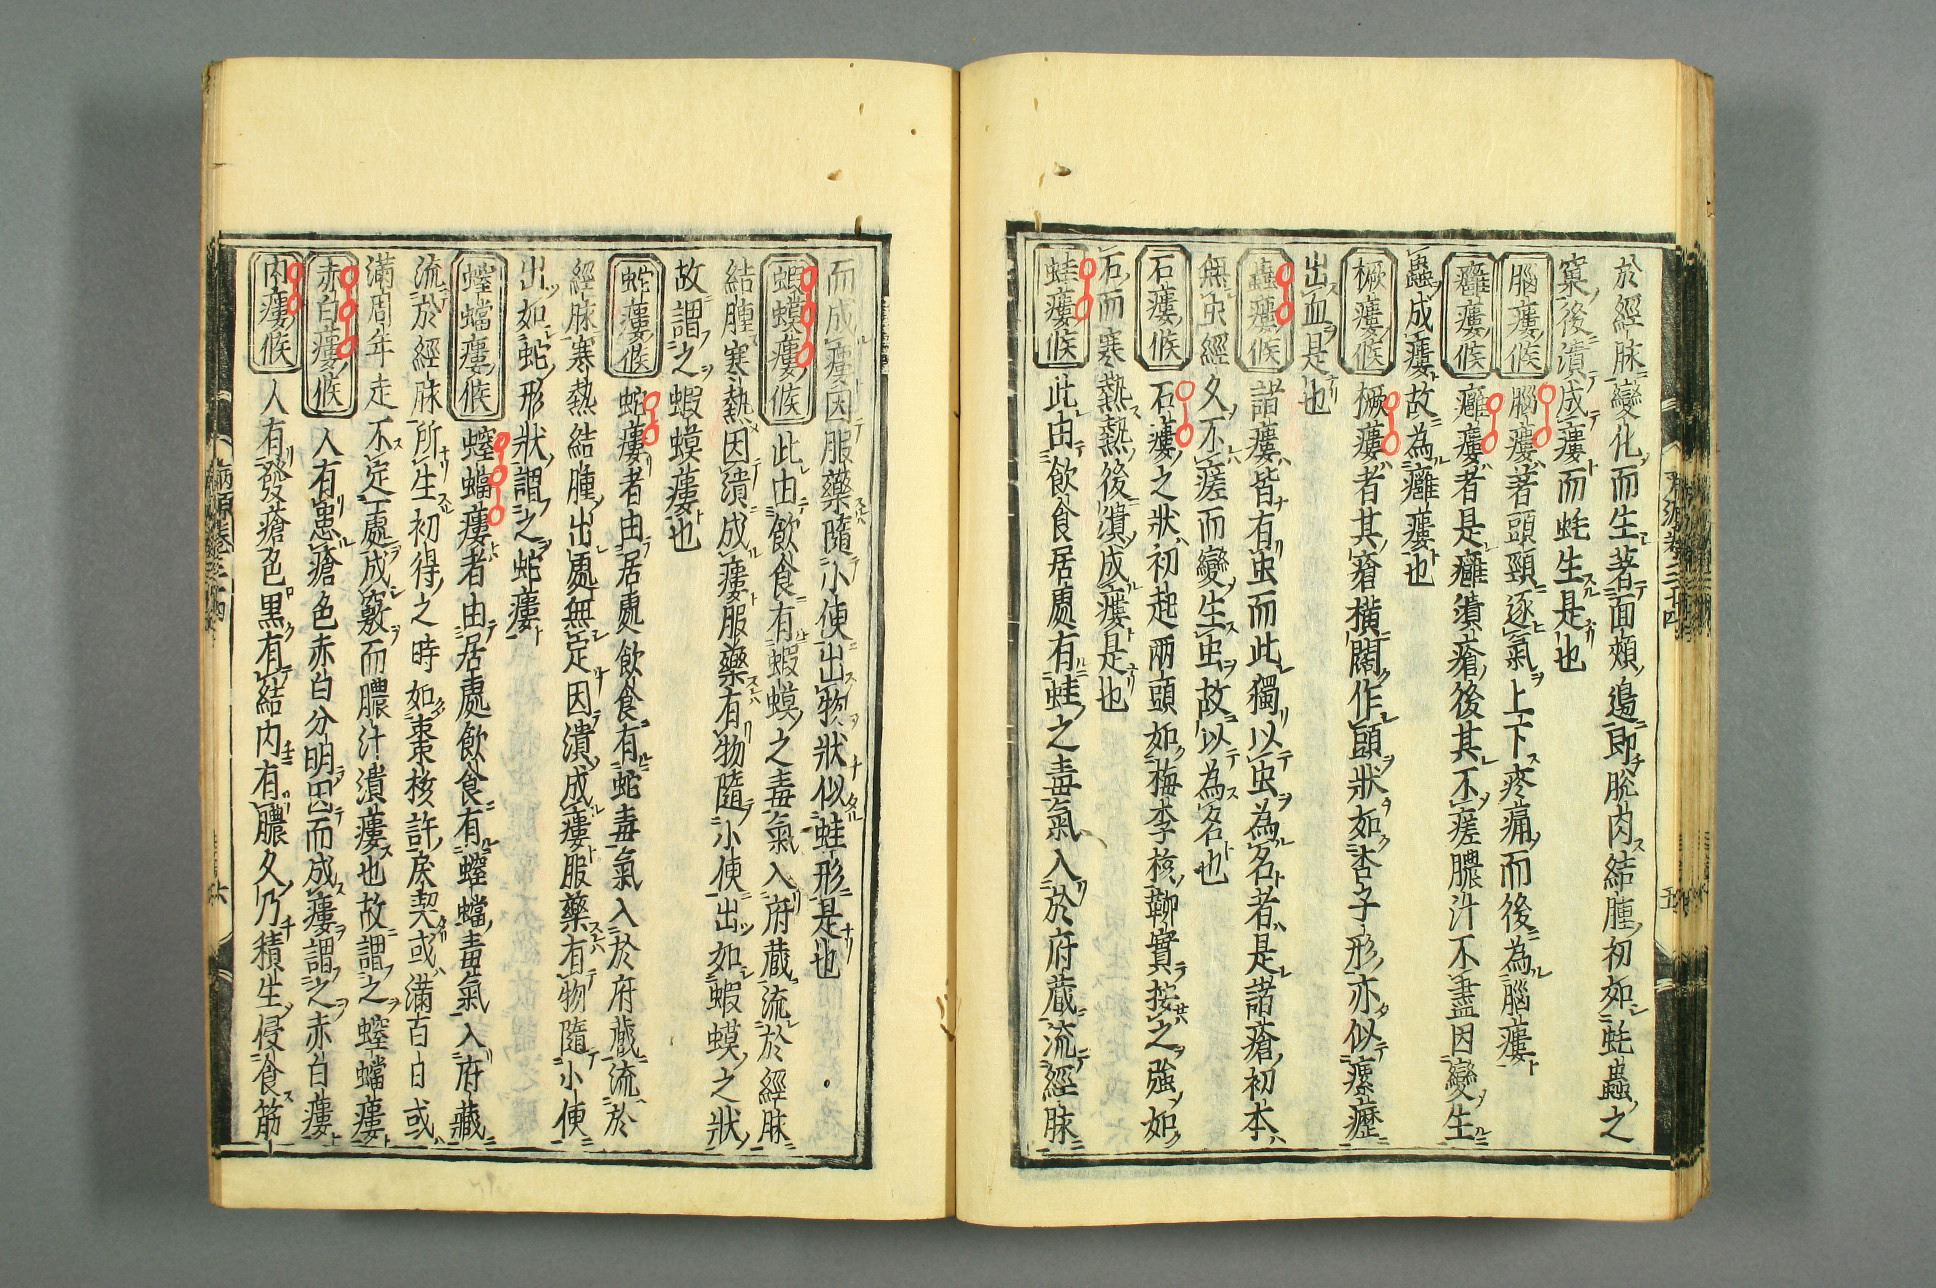 於經脉變化而生著面頰邊即脫肉結腫初如蚝蟲之
窠後潰成瘻而蚝生是也
腦瘻候 腦瘻者頭頸逐氣上下疼痛而後為腦瘻
癰瘻候 癰瘻者是癰潰瘡後其不瘥膿汁不盡因變生
蟲成瘻故為癰瘻也
橛瘻候 橛瘻者其瘡橫闊作頭狀如杏子形亦似瘰癧
出血是也
蟲瘻候 諸瘻皆有虫而此獨以虫為名者是諸瘡初本
無虫經久不瘥而變生虫故以為名也
石瘻候 石瘻之狀初起兩頭如梅李核鞕實按之強如
石而寒熱熱後潰成瘻是也
蛙瘻候 此由飲食居處有蛙之毒氣入於府藏流經脉
而成瘻因服藥隨小便出物狀似蛙形是也
蝦蟆瘻候 此由飲食有蝦蟆之毒氣入府藏流於經脉
結腫寒熱因潰成瘻服藥有物隨小便出如蝦蟆之狀
故謂之蝦蟆瘻也
蛇瘻候 蛇瘻者由居處飲食有蛇毒氣入於府藏流於
經脉寒熱結腫出處無定因潰成瘻服藥有物隨小便
出如蛇形狀謂之蛇瘻
螲蟷瘻候 螲蟷瘻者由居處飲食有螲蟷毒氣入府藏
流於經脉所生初得之時如棗核許戾契或滿百日或
滿周年走不定一處成竅而膿汁潰瘻也故謂之螲蟷瘻
赤白瘻候 人有患瘡色赤白分明因而成瘻謂之赤白瘻
內瘻候 人有發瘡色黑有結內有膿久乃積生侵食筋
病源卷三十四 六